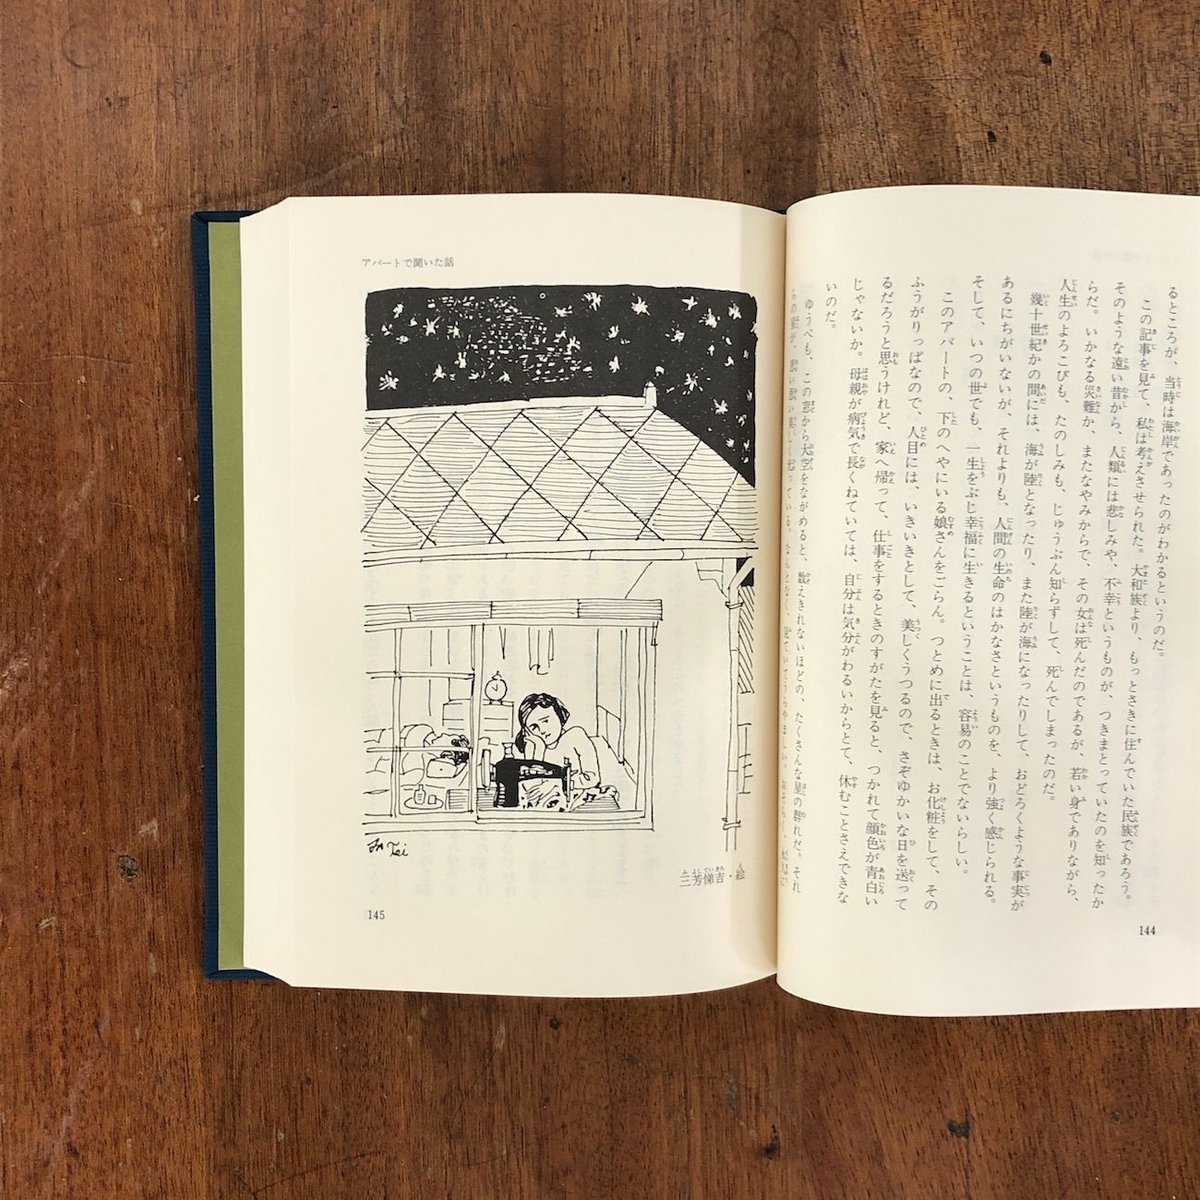 るところが、当時は海岸であったのがわかるというのだ。
この記事を見て、私は考えさせられた。大和族より、もっとさきに住んでいた民族であろう。
そのような遠い昔から、人類には悲しみや、不幸というものが、つきまとっていたのを知ったか
らだ。いかなる災難か、またなやみからで、その女は死んだのであるが、若い身でありながら、
人生のよろこびも、たのしみも、じゅうぶん知らずして、死んでしまったのだ。
幾十世紀かの間には、海が陸となったり、また陸が海になったりして、おどろくような事実が
あるにちがいないが、それよりも、人間の生命のはかなさというものを、より強く感じられる。
そして、いつの世でも、一生をぶじ幸福に生きるということは、容易のことでないらしい。
このアパートの、下のへやにいる娘さんをごらん。つとめに出るときは、お化粧をして、その
ふうがりっぱなので、人目には、いきいきとして、美しくうつるので、さぞゆかいな日を送って
るだろうと思うけれど、家へ帰って、仕事をするときのすがたを見ると、つかれて顔色が青白い
じゃないか。母親が病気で長くねていては、自分は気分がわるいからとて、休むことさえできな
いのだ。
ゆうべも、この窓から大空をながめると、数えきれないほどの、たくさんな星の群れだ。それ
144
アパートで聞いた話
三芳悌吉・絵
145